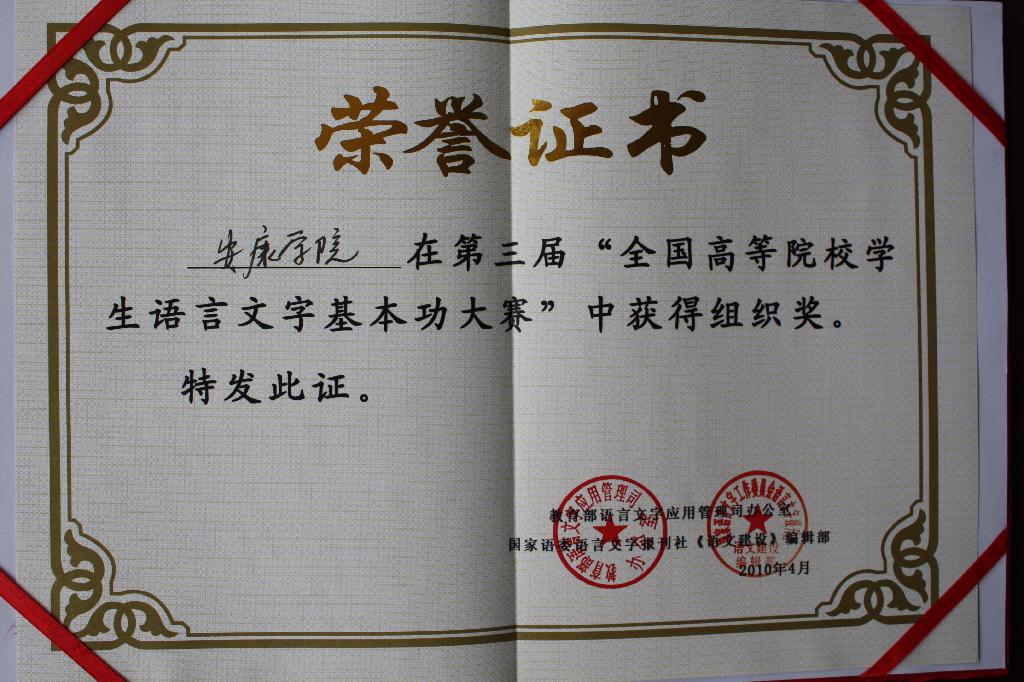 荣誉证书
安康学院在第三届“全国高等院校学
生语言文字基本功大赛”中获得组织奖。
特发此证。
教育部语言文字应用管理司办公室
国家语委语言文字报刊社《语文建设》编辑部
2010年4月
教育部语言文字应用管理司
办公室
语文建设
编辑部